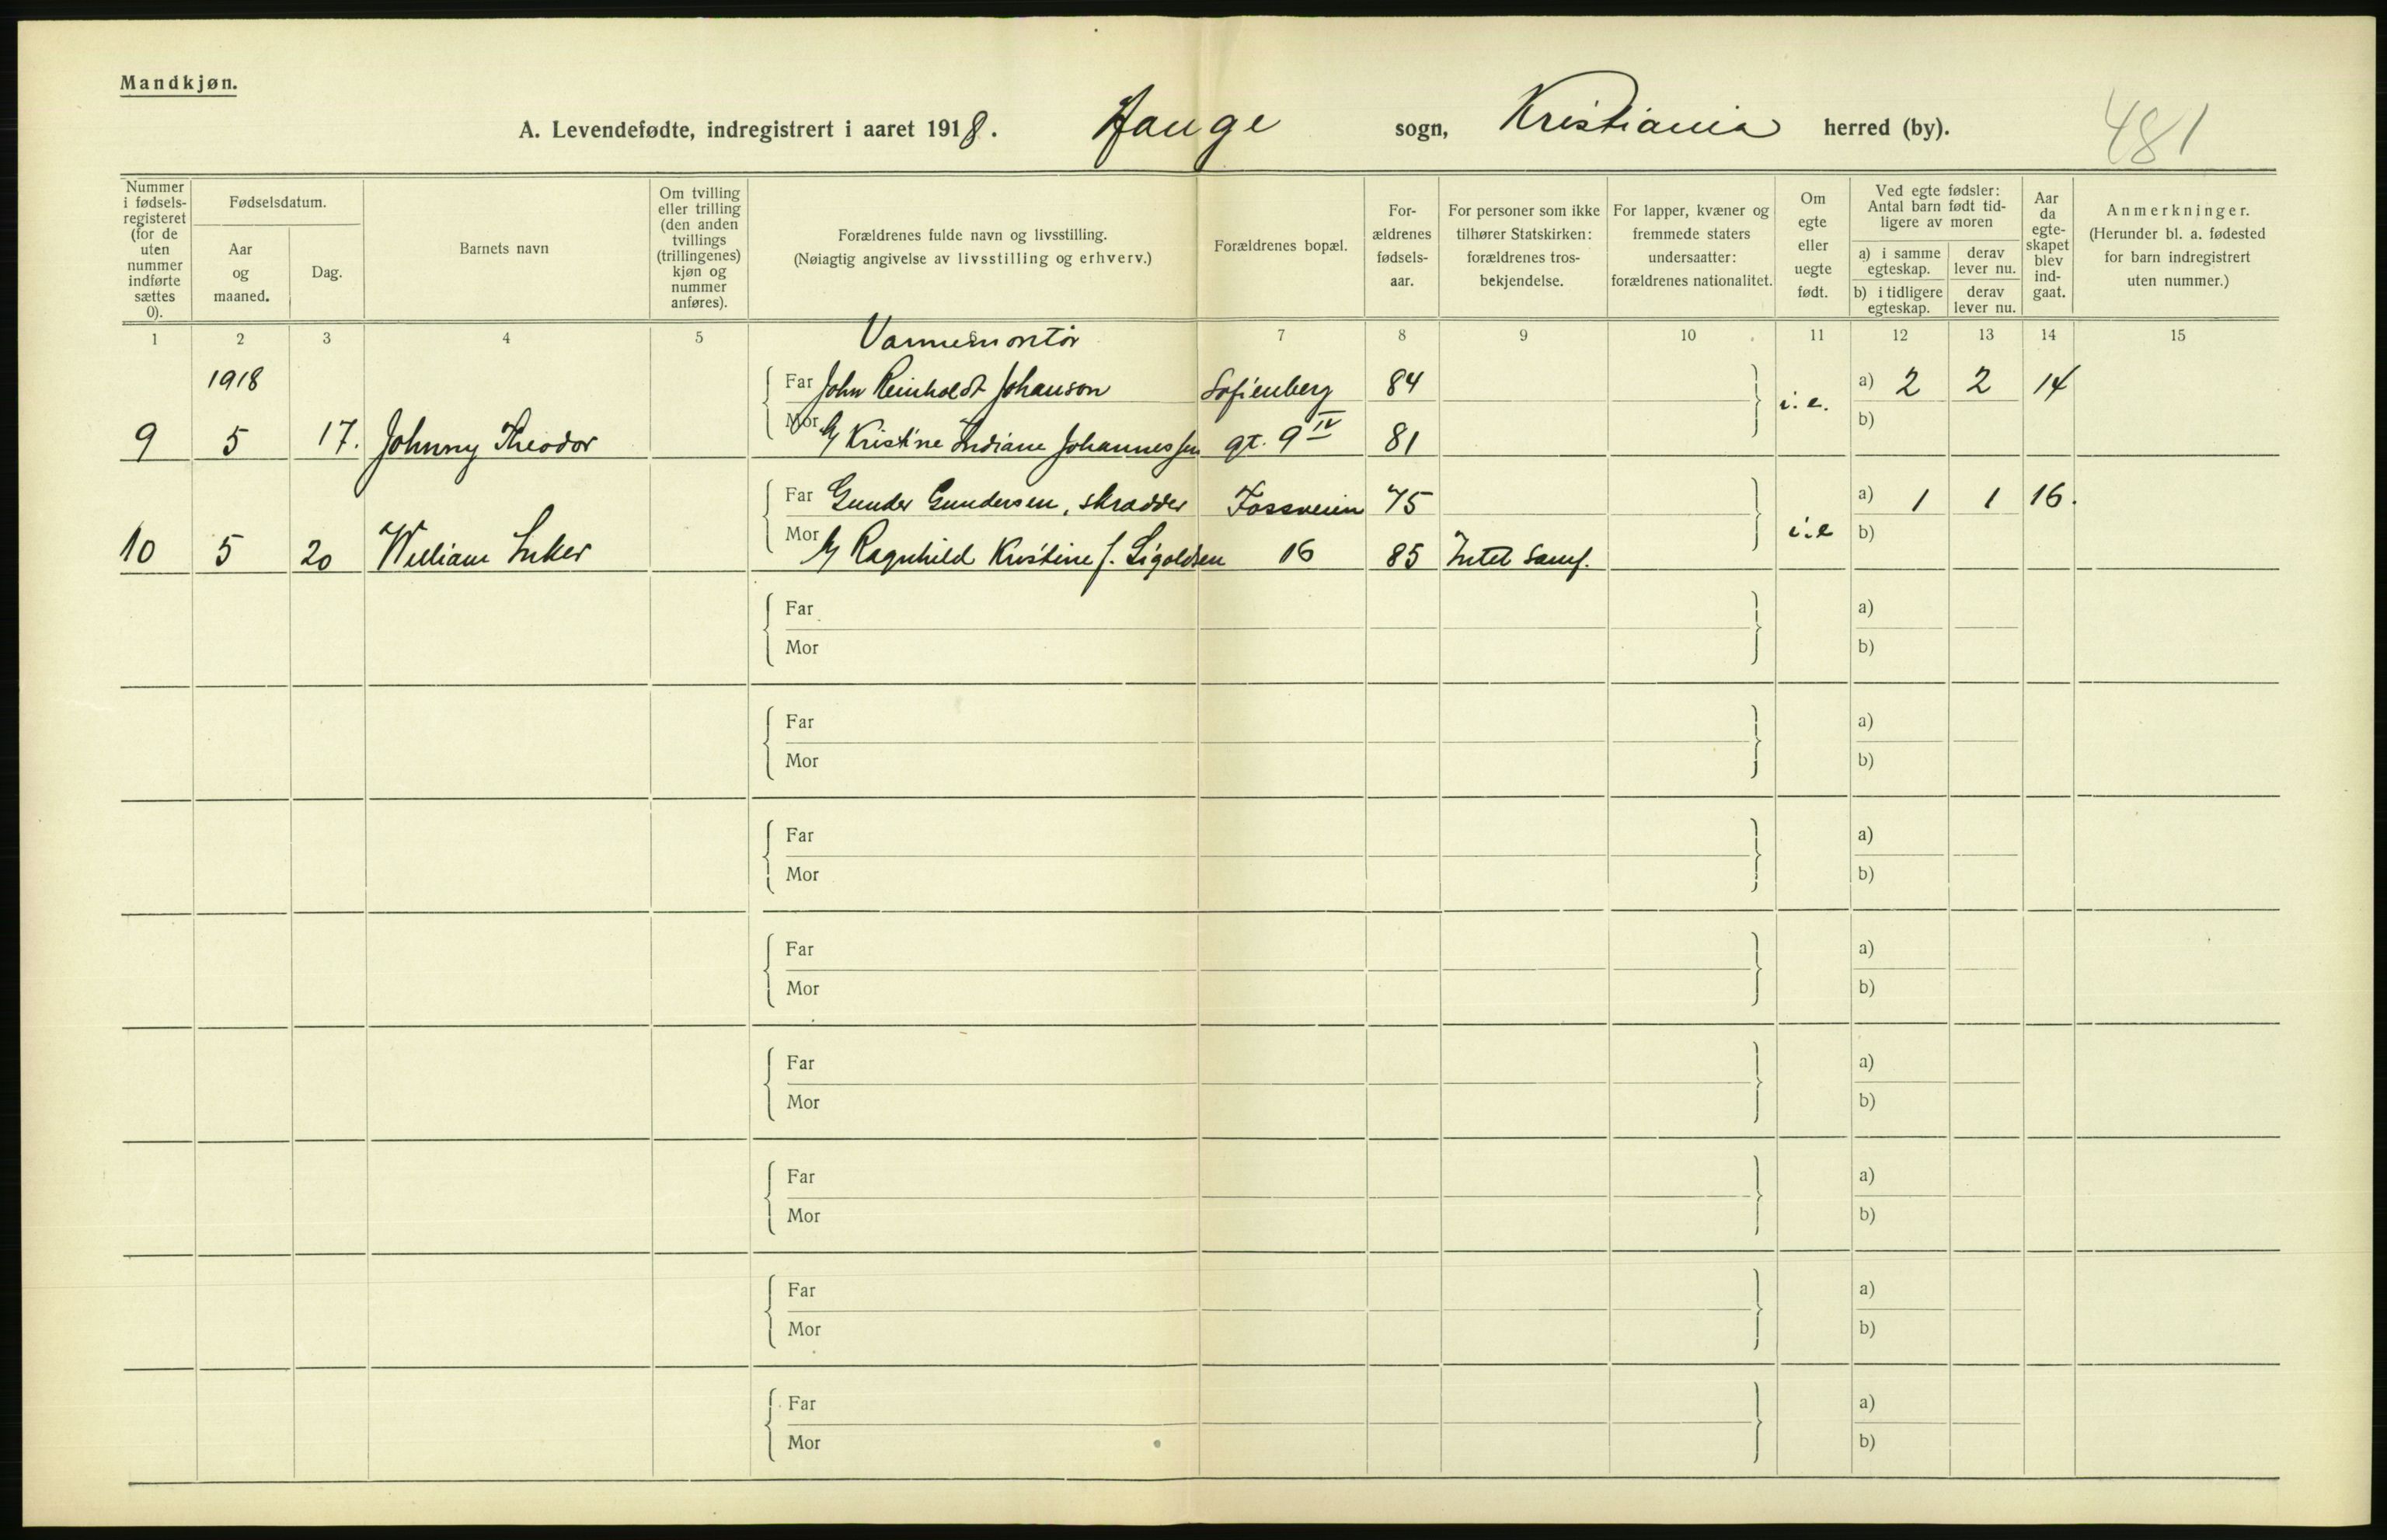 Mandkjøn.
A. Levendefødte, indregistrert i aaret 1918. Hauge sogn, Kristiania herred (by). 481
Nummer i fødselsregisteret (for de uten nummer indførte sættes 0).
Fødselsdatum.
Aar og maaned.
Dag.
Barnets navn
Om tvilling eller trilling (den anden tvillings (trillingenes) kjøn og nummer anføres).
Forældrenes fulde navn og livsstilling.
(Nøiagtig angivelse av livsstilling og erhverv.)
Forældrenes bopæl.
Forældrenes fødselsaar.
For personer som ikke tilhører Statskirken: forældrenes trosbekjendelse.
For lapper, kvæner og fremmede staters undersaatter: forældrenes nationalitet.
Om egte eller uegte født.
Ved egte fødsler: Antal barn født tidligere av moren
a) i samme egteskap.
derav lever nu.
b) i tidligere egteskap.
derav lever nu.
Aar da egteskapet blev indgaat.
Anmerkninger.
(Herunder bl. a. fødested for barn indregistrert uten nummer.)
1 2 3 4 5 7 8 9 10 11 12 13 14 15
Varmemontør
1918 Far John Reinholdt Johanson Sofienberg 84 i. e. a) 2 2 14
9 5 17. Johnny Theodor Mor Kristine Indiane Johannessen gt. 9 IV 81 b)
Far Gunder Gundersen, skradder Fossveien 75 i. e a) 1 1 16.
10 5 20 William Inker Mor Ragnhild Kristine f. Sigoldsen 16 85 Intet samf. b)
Far a)
Mor b)
Far a)
Mor b)
Far a)
Mor b)
Far a)
Mor b)
Far a)
Mor b)
Far a)
Mor b)
Far a)
Mor b)
Far a)
Mor b)